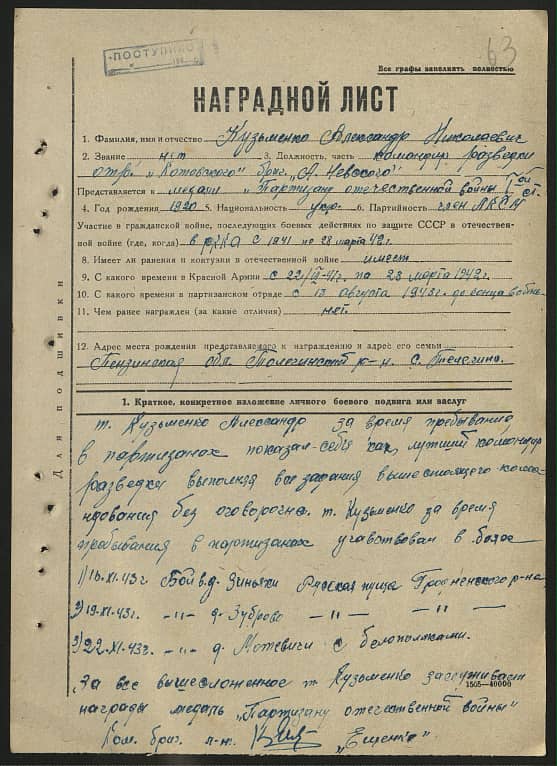 ПОСТУПИЛО
63
Все графы заполнять полностью
НАГРАДНОЙ ЛИСТ
1. Фамилия, имя и отчество Кузьменко Александр Николаевич
2. Звание нет 3. Должность, часть командир разведки
отр. "Котовского" бриг. "А. Невского"
Представляется к медали "Партизану отечественной войны" ст.
4. Год рождения 1920 5. Национальность укр. 6. Партийность член ЛКСМ
Участие в гражданской войне, последующих боевых действиях по защите СССР в отечествен-
ной войне (где, когда) в РККА с 1941 по 28 марта 42 г.
8. Имеет ли ранения и контузии в отечественной войне имеет
9. С какого времени в Красной Армии с 22/ 41 г. по 28 марта 1942 г.
10. С какого времени в партизанском отряде с 13 августа 1943 г. до конца войны
11. Чем ранее награжден (за какие отличия) нет.
12. Адрес места рождения представляемого к награждению и адрес его семьи
Пензинская обл. р-н. с. Телегино.
1. Краткое, конкретное изложение личного боевого подвига или заслуг
т. Кузьменко Александр за время пребывания
в партизанах показал себя как лутший командир
разведки выполняя все задания вышестоящего кома-
ндования без оговорочно. т. Кузьменко за время
пребывания в партизанах учавствовал в боях
1) 16.XI.43 г Бой в д. Зиньяки Русская пуща Гродненского р-на
2) 19.XI.43 г. -"- д. Зуброво -"- -"-
3) 22.XI.43 г. -"- д. Мотевичи с белополяками.
"За все вышесложенное т. Кузьменко заслуживает
1505—40000
награды медаль "Партизану отечественной войны"
Ком. бриг. л-т. "Ещенко".
Для подшивки